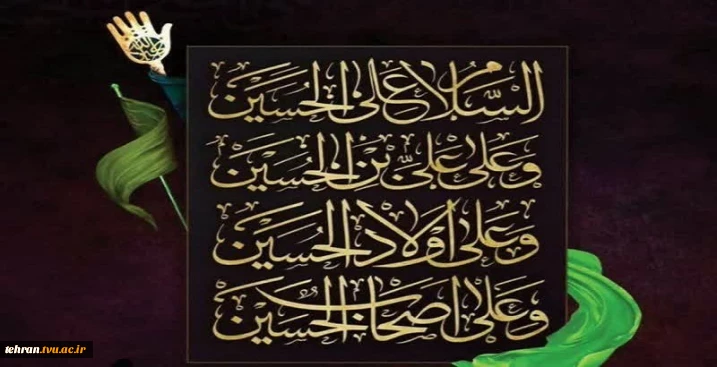 السلام علی الحسین
وَعَلی عَلیِّ بْنِ الْحُسَیْنِ
وَعَلی اَوْلادِ الْحُسَیْنِ
وَعَلی اَصْحابِ الْحُسَیْنِ
tehran.tvu.ac.ir